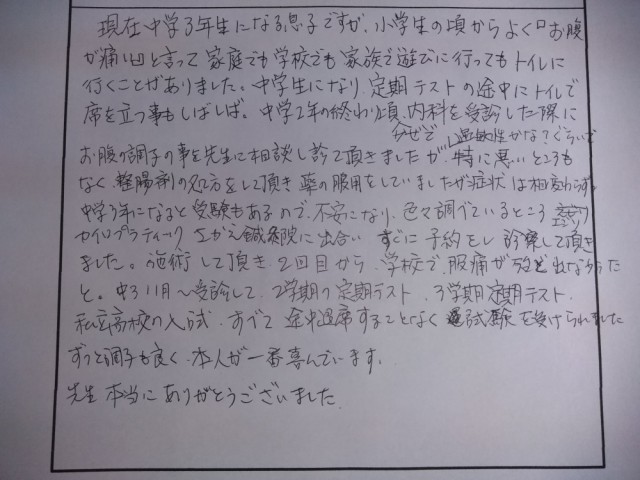 現在中学3年生になる息子ですが、小学生の頃からよく"お腹
が痛い"と言って家庭でも学校でも家族で遊びに行ってもトイレに
行くことがありました。中学生になり、定期テストの途中にトイレで
席を立つ事もしばしば。中学2年の終わり頃、内科を受診した際に
かぜで 過敏性かな?ぐらいで
お腹の調子の事を先生に相談し診て頂きましたが、特に悪いところも
なく、整腸剤の処方をして頂き薬の服用をしていましたが症状は相変わらず。
中学3年になると受験もあるので、不安になり、色々調べているところ
カイロプラティック さがえ鍼灸院に出合い すぐに予約をし診察して頂き
ました。施術して頂き、2回目から、学校で、腹痛が殆ど出なかった
と。中3 11月〜受診して、2学期の定期テスト、3学期定期テスト、
私立高校の入試、すべて途中退席することなく試験を受けられました
ずっと調子も良く、本人が一番喜んでいます。
先生本当にありがとうございました。